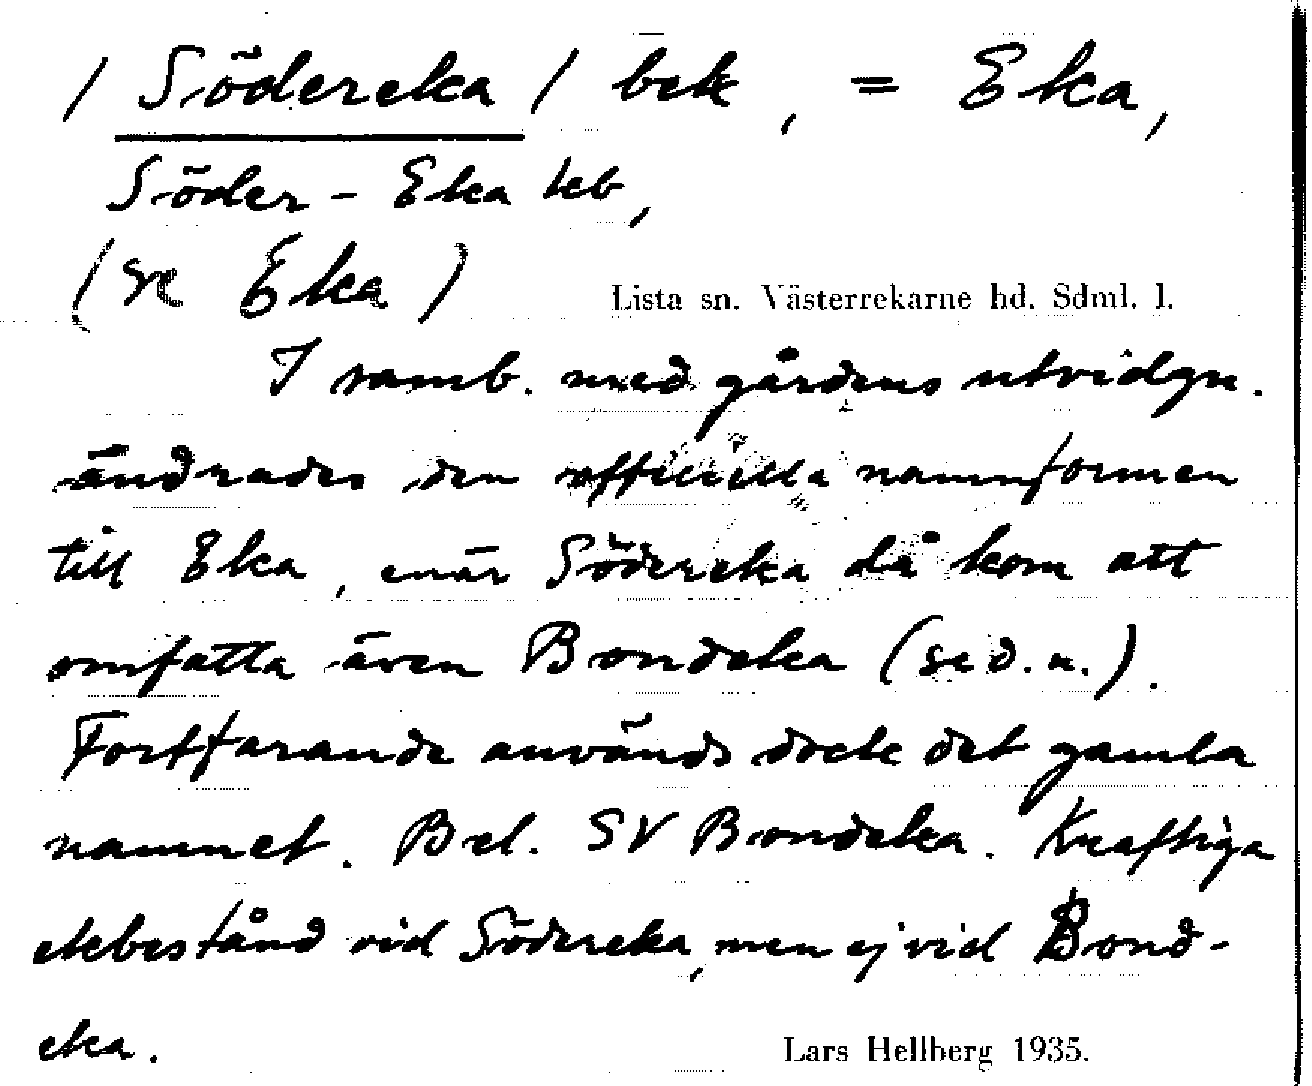 / Södereka / bek, = Eka,
Söder-Eka keb,
(se Eka)
Lista sn. Västerrekarne hd. Sdml. l.
I samb. med gårdens utvidgn.
ändrades den officiella namnformen
till Eka, enär Södereka då kom att
omfatta även Bondeka (se d.n.).
Fortfarande används dock det gamla
namnet. Bel. SV Bondeka. Kraftiga
ekbestånd vid Södereka, men ej vid Bond-
eka.
Lars Hellberg 1935.